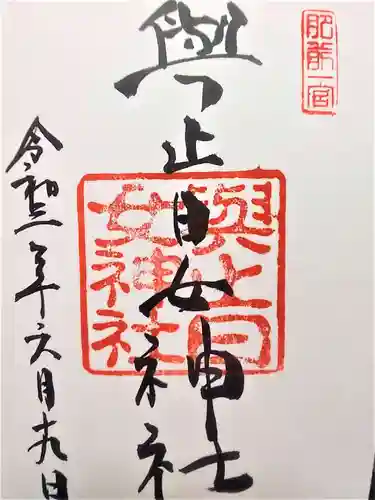 肥前一宮
與止日女神社
與止日
女神社
令和二年六月九日